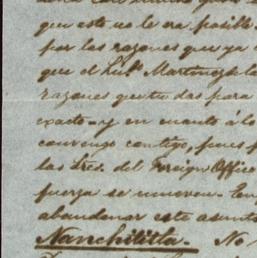 que esto no le era posible
por las razones que ya
que el Lic.º Martinez de la
razones que tu das para
exacto - y en cuanto á lo
convengo contigo, pues
las Sres. del Foreign Office
fuerza se mueven.
abandonar este asunto
Nanchititla. No